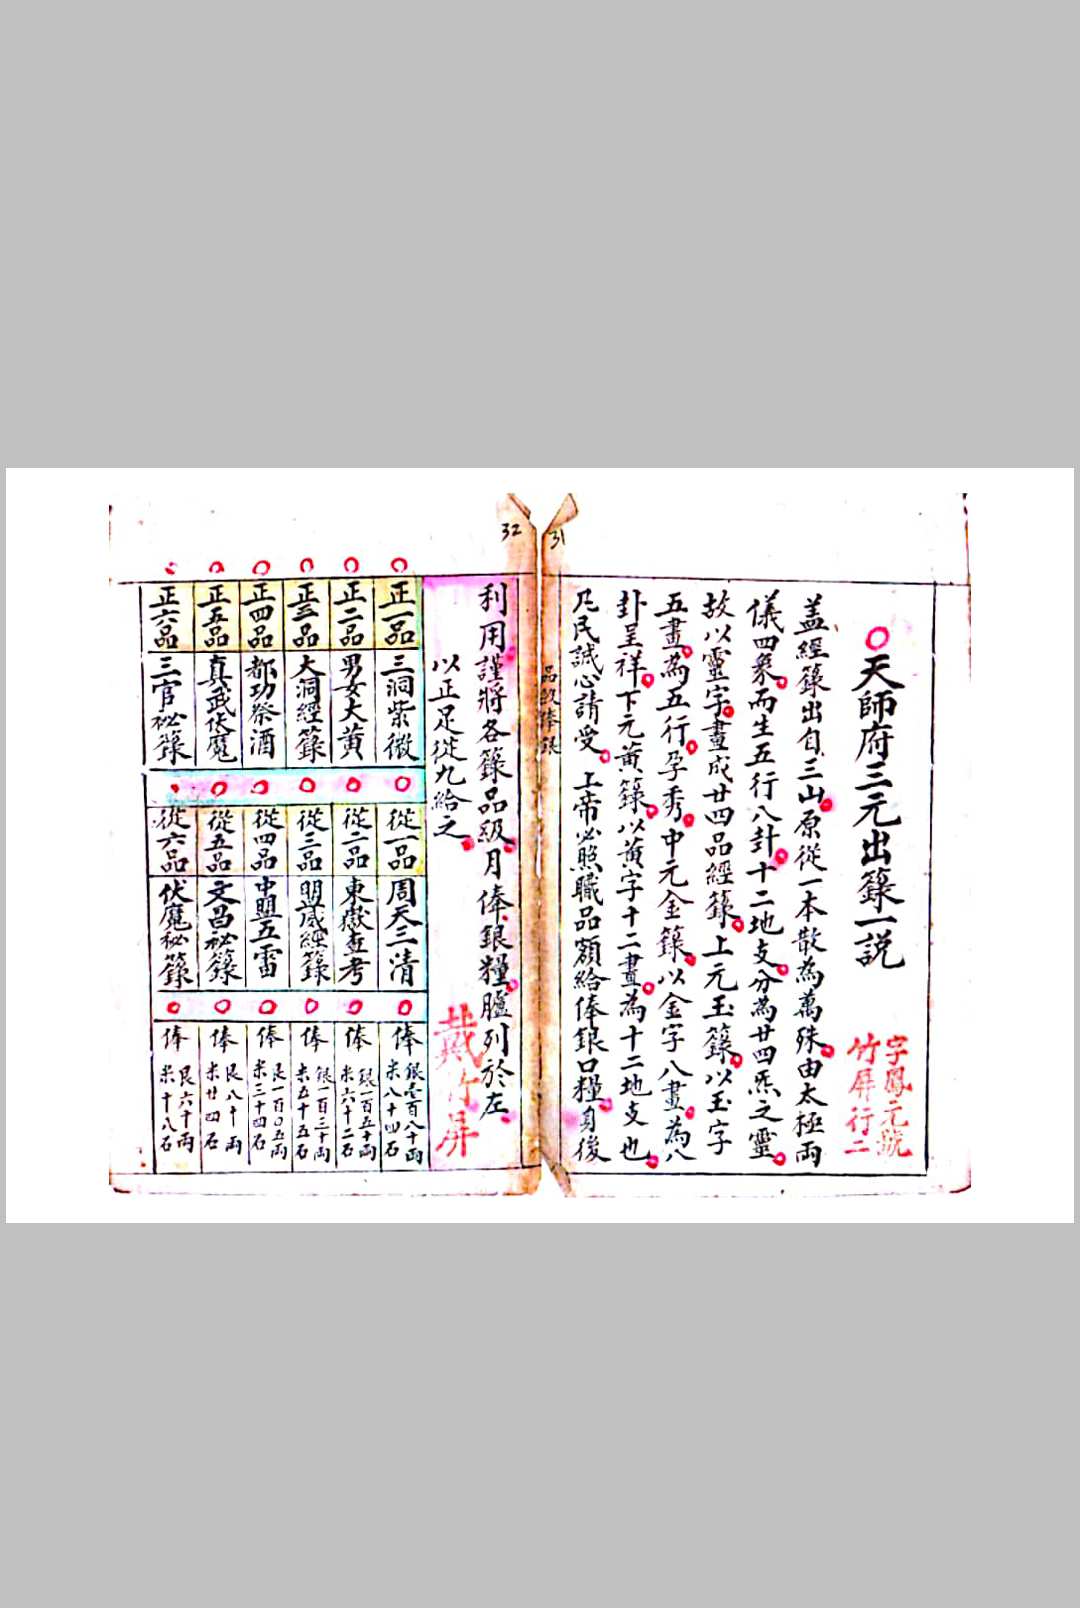 31
○天師府三元出籙一説
字鳳元號
竹屏行二
盖經籙出自三山原從一本散為萬殊由太極兩
儀四象而生五行八卦十二地支分為廿四炁之靈
故以靈字畫成廿四品經籙上元玉籙以玉字
五畫為五行孕秀中元金籙以金字八畫為八
卦呈祥下元黃籙以黃字十二畫為十二地支也
凡民誠心請受上帝必照職品額給俸銀口糧身後
品級俸銀
32
利用謹將各籙品級月俸銀糧臚列於左
以正足從九給之
戴竹屏
正一品 三洞紫微 從一品 周天三清 俸 銀壹百八十兩 米八十四石
正二品 男女大黃 從二品 東嶽查考 俸 銀一百五十兩 米六十二石
正三品 大洞經籙 從三品 盟威經籙 俸 銀一百三十兩 米五十五石
正四品 都功祭酒 從四品 中盟五雷 俸 艮一百0五兩 米三十四石
正五品 真武伏魔 從五品 文昌秘籙 俸 艮八十兩 米廿四石
正六品 三官秘籙 從六品 伏魔秘籙 俸 艮六十兩 米十八石